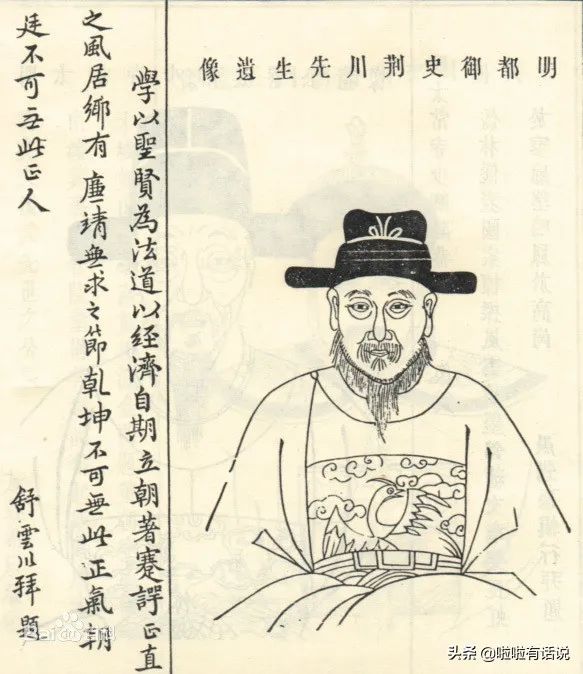 明都御史荆川先生遺像
學以聖賢為法道以經濟自期立朝著蹇諤正直
之風居鄉有廉靖無求之節乾坤不可無此正氣朝
廷不可无此正人
舒雲川拜題
Bai百科
头条 @啦啦有话说